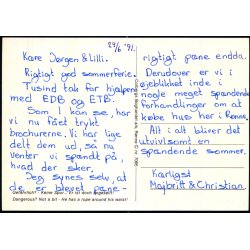 29/6 '91.
Kære Jørgen & Lilli.
Rigtig god sommerferie.
Tusind tak for hjælpen
med EDB og ETB.
Som I kan se, har
vi nu fået trykt
brochurerne. Vi har lige
delt dem ud, så nu
venter vi spændt på,
hvad der sker.
Jeg synes selv, at
de er blevet pæne-
rigtigt pæne endda.
Derudover er vi i
øjeblikket inde i
nogle meget spændende
forhandlinger om at
købe hus her i Rønne.
Alt i alt bliver det
utvivlsomt en
spændende sommer.
Kærligst
Majbritt & Christian.
Dangerous? Not a bit - He has a rope around his waist!